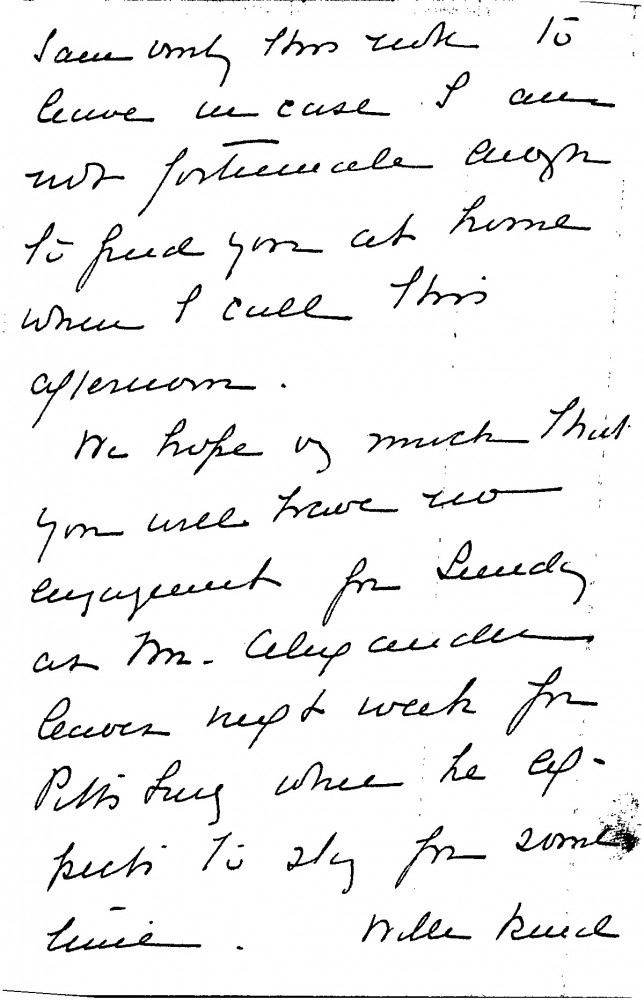 I am only this note to
leave in case I am
not fortunate enough
to find you at home
when I call this
afternoon.
We hope very much that
you will have no
engagement for Sunday
as Mr. Alexander
leaves next week for
Pittsburg where he ex-
pects to stay for some
time. With kind